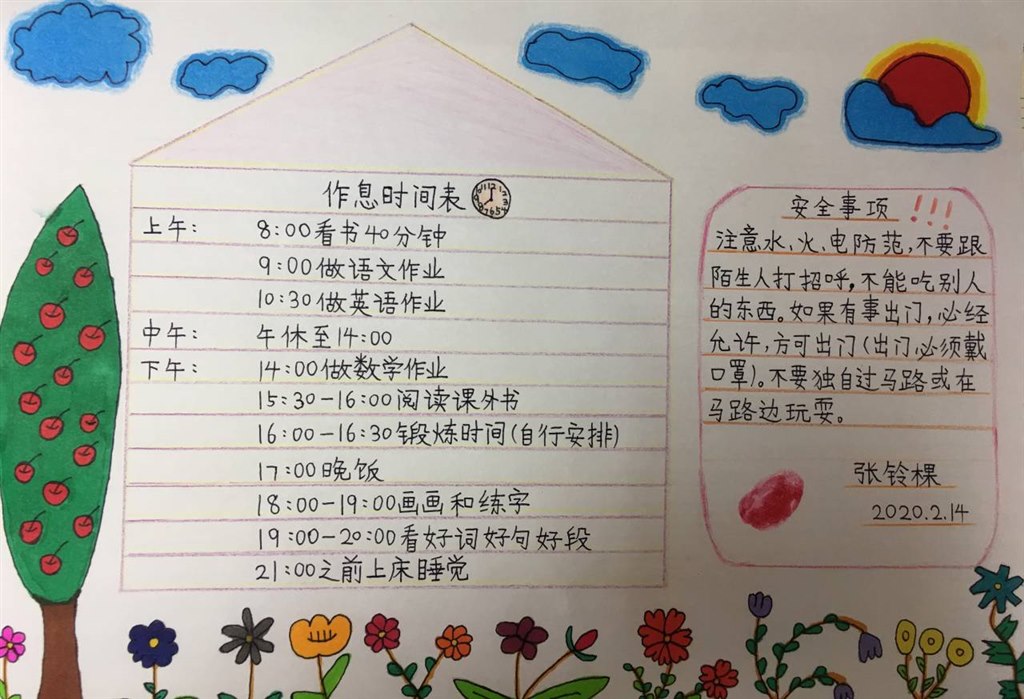 作息时间表
上午： 8:00看书40分钟
9:00做语文作业
10:30做英语作业
中午： 午休至14:00
下午： 14:00做数学作业
15:30-16:00阅读课外书
16:00-16:30锻炼时间(自行安排)
17:00晚饭
18:00-19:00画画和练字
19:00-20:00看好词好句好段
21:00之前上床睡觉
安全事项 !!!
注意水、火、电防范，不要跟
陌生人打招呼，不能吃别人
的东西。如果有事出门，必经
允许，方可出门(出门必须戴
口罩)。不要独自过马路或在
马路边玩耍。
张铃棵
2020.2.14